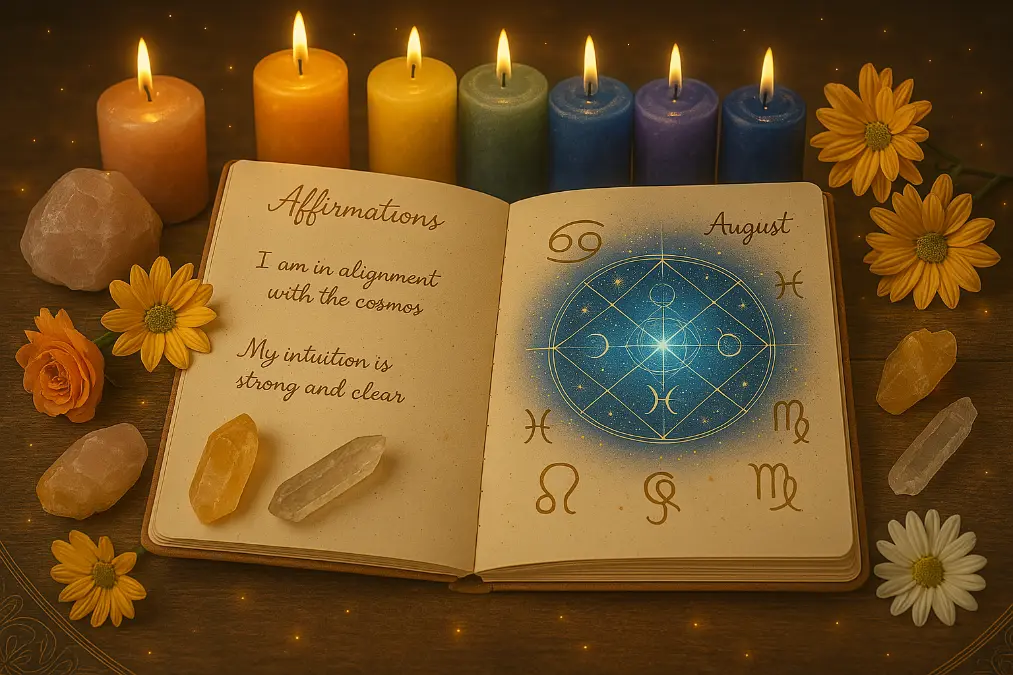 Affirmations
I am in alignment
with the cosmos
My intuition is
strong and clear
August